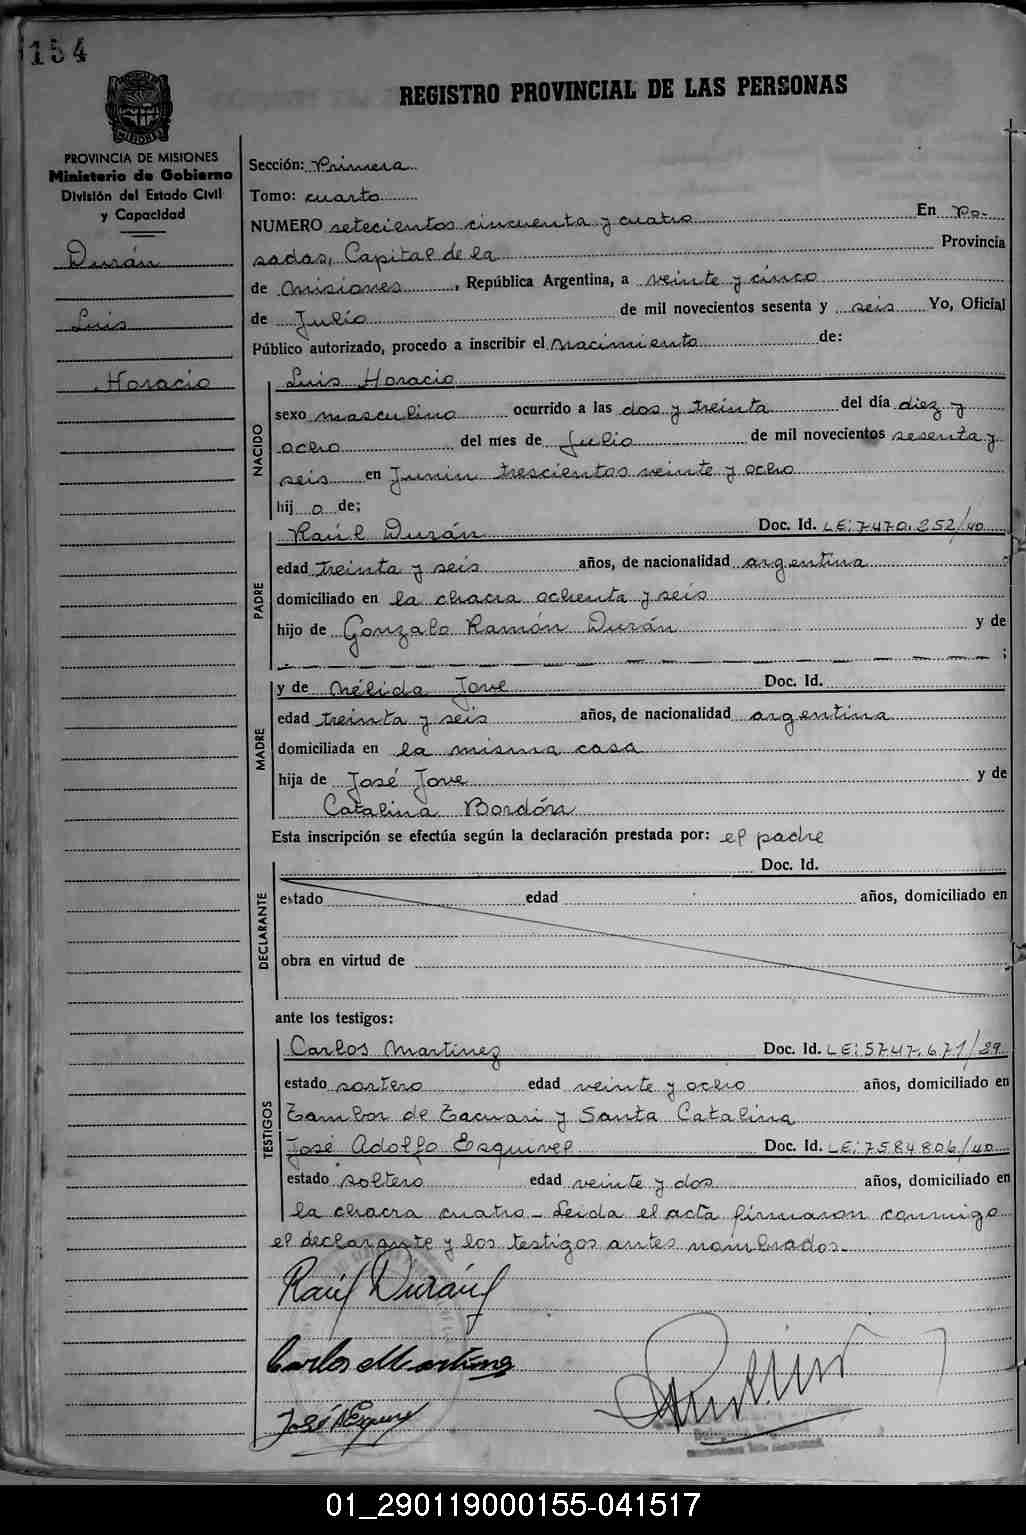 154
REGISTRO PROVINCIAL DE LAS PERSONAS
PROVINCIA DE MISIONES
Ministerio de Gobierno
División del Estado Civil
y Capacidad
Durán
Luis
Horacio
Sección: Primera
Tomo: cuarto
NUMERO setecientos cincuenta y cuatro En Po-
sadas, Capital de la Provincia
de Misiones, República Argentina, a veinte y cinco
de Julio de mil novecientos sesenta y seis Yo, Oficial
Público autorizado, procedo a inscribir el nacimiento de:
NACIDO
Luis Horacio
sexo masculino ocurrido a las dos y treinta del día diez y
ocho del mes de Julio de mil novecientos sesenta y
seis en Junin trescientos veinte y ocho
hij o de:
PADRE
Raúl Durán Doc. Id. LE: 7.470.252/40
edad treinta y seis años, de nacionalidad argentina
domiciliado en la chacra ochenta y seis
hijo de Gonzalo Ramón Durán y de
;
MADRE
y de Nélida Jove Doc. Id.
edad treinta y seis años, de nacionalidad argentina
domiciliada en la misma casa
hija de José Jove y de
Catalina Bordón
Esta inscripción se efectúa según la declaración prestada por: el padre
DECLARANTE
Doc. Id.
estado edad años, domiciliado en
obra en virtud de
ante los testigos:
TESTIGOS
Carlos Martinez Doc. Id. LE: 5747.671/39
estado soltero edad veinte y ocho años, domiciliado en
Tambor de Tacuari y Santa Catalina
José Adolfo Esquivel Doc. Id. LE: 7584806/40
estado soltero edad veinte y dos años, domiciliado en
la chacra cuatro - Leida el acta firmaron conmigo
el declarante y los testigos antes nombrados.-
Raúl Durán
Carlos Martinez
José A Esquivel
01_290119000155-041517